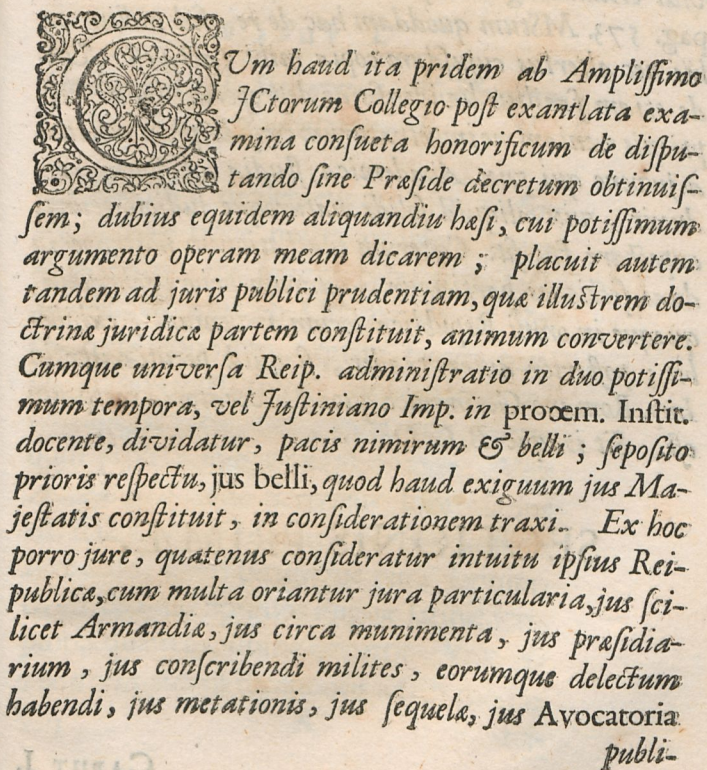 CUm haud ita pridem ab Ampliſſimo
JCtorum Collegio poſt exantlata exa-
mina conſueta honorificum de diſpu-
tando ſine Præſide decretum obtinuiſ-
ſem; dubius equidem aliquandiu hæſi, cui potiſſimum
argumento operam meam dicarem ; placuit autem
tandem ad juris publici prudentiam, quæ illuſtrem do-
ctrinæ juridicæ partem conſtituit, animum convertere.
Cumque univerſa Reip. adminiſtratio in duo potiſſi-
mum tempora, vel Juſtiniano Imp. in proœm. Inſtit.
docente, dividatur, pacis nimirum & belli ; ſepoſito
prioris reſpectu, jus belli, quod haud exiguum jus Ma-
jeſtatis conſtituit, in conſiderationem traxi. Ex hoc
porro jure, quatenus conſideratur intuitu ipſius Rei-
publicæ, cum multa oriantur jura particularia, jus ſci-
licet Armandiæ, jus circa munimenta, jus præſidia-
rium, jus conſcribendi milites, eorumque delectum
habendi, jus metationis, jus ſequelæ, jus Avocatoria
publi-